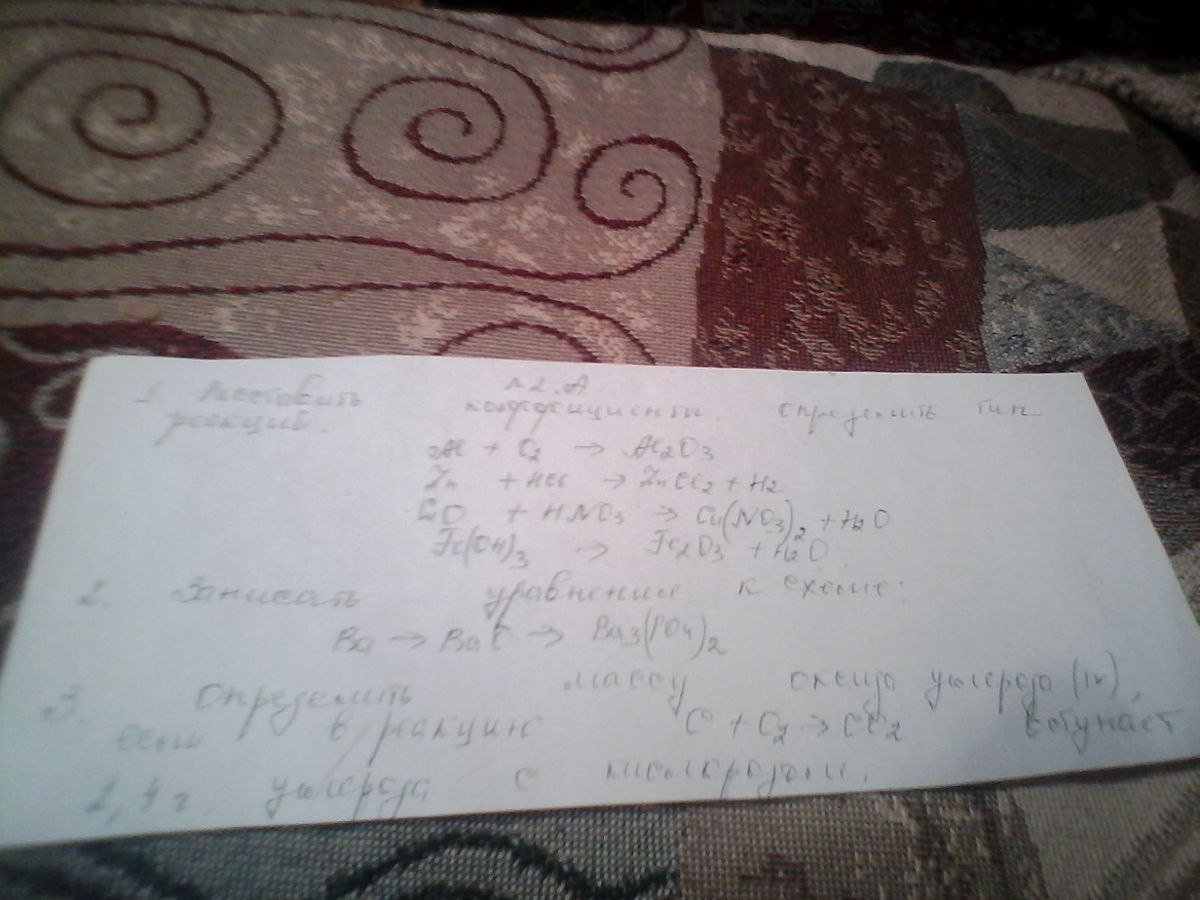 1. Расставить коэффициенты. Определить тип
реакции.
Al + O₂ → Al₂O₃
Zn + HCl → ZnCl₂ + H₂
CuO + HNO₃ → Cu(NO₃)₂ + H₂O
Fe(OH)₃ → Fe₂O₃ + H₂O
2. Записать уравнения к схеме:
Ba → BaO → Ba₃(PO₄)₂
3. Определить массу оксида углерода (IV),
если в реакцию C + O₂ → CO₂ вступает
2,4 г. углерода с кислородом.